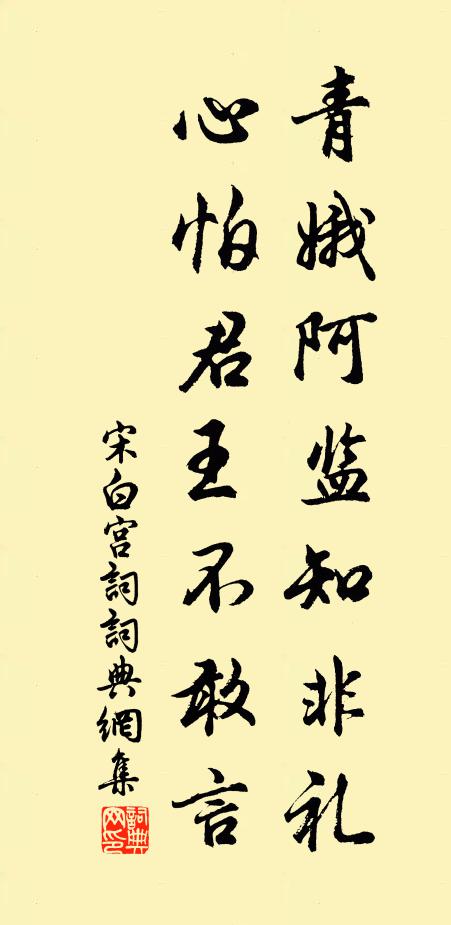 青娥阿监知非礼
心怕君王不敢言
宋白宫詞詞典網集
詞典网印